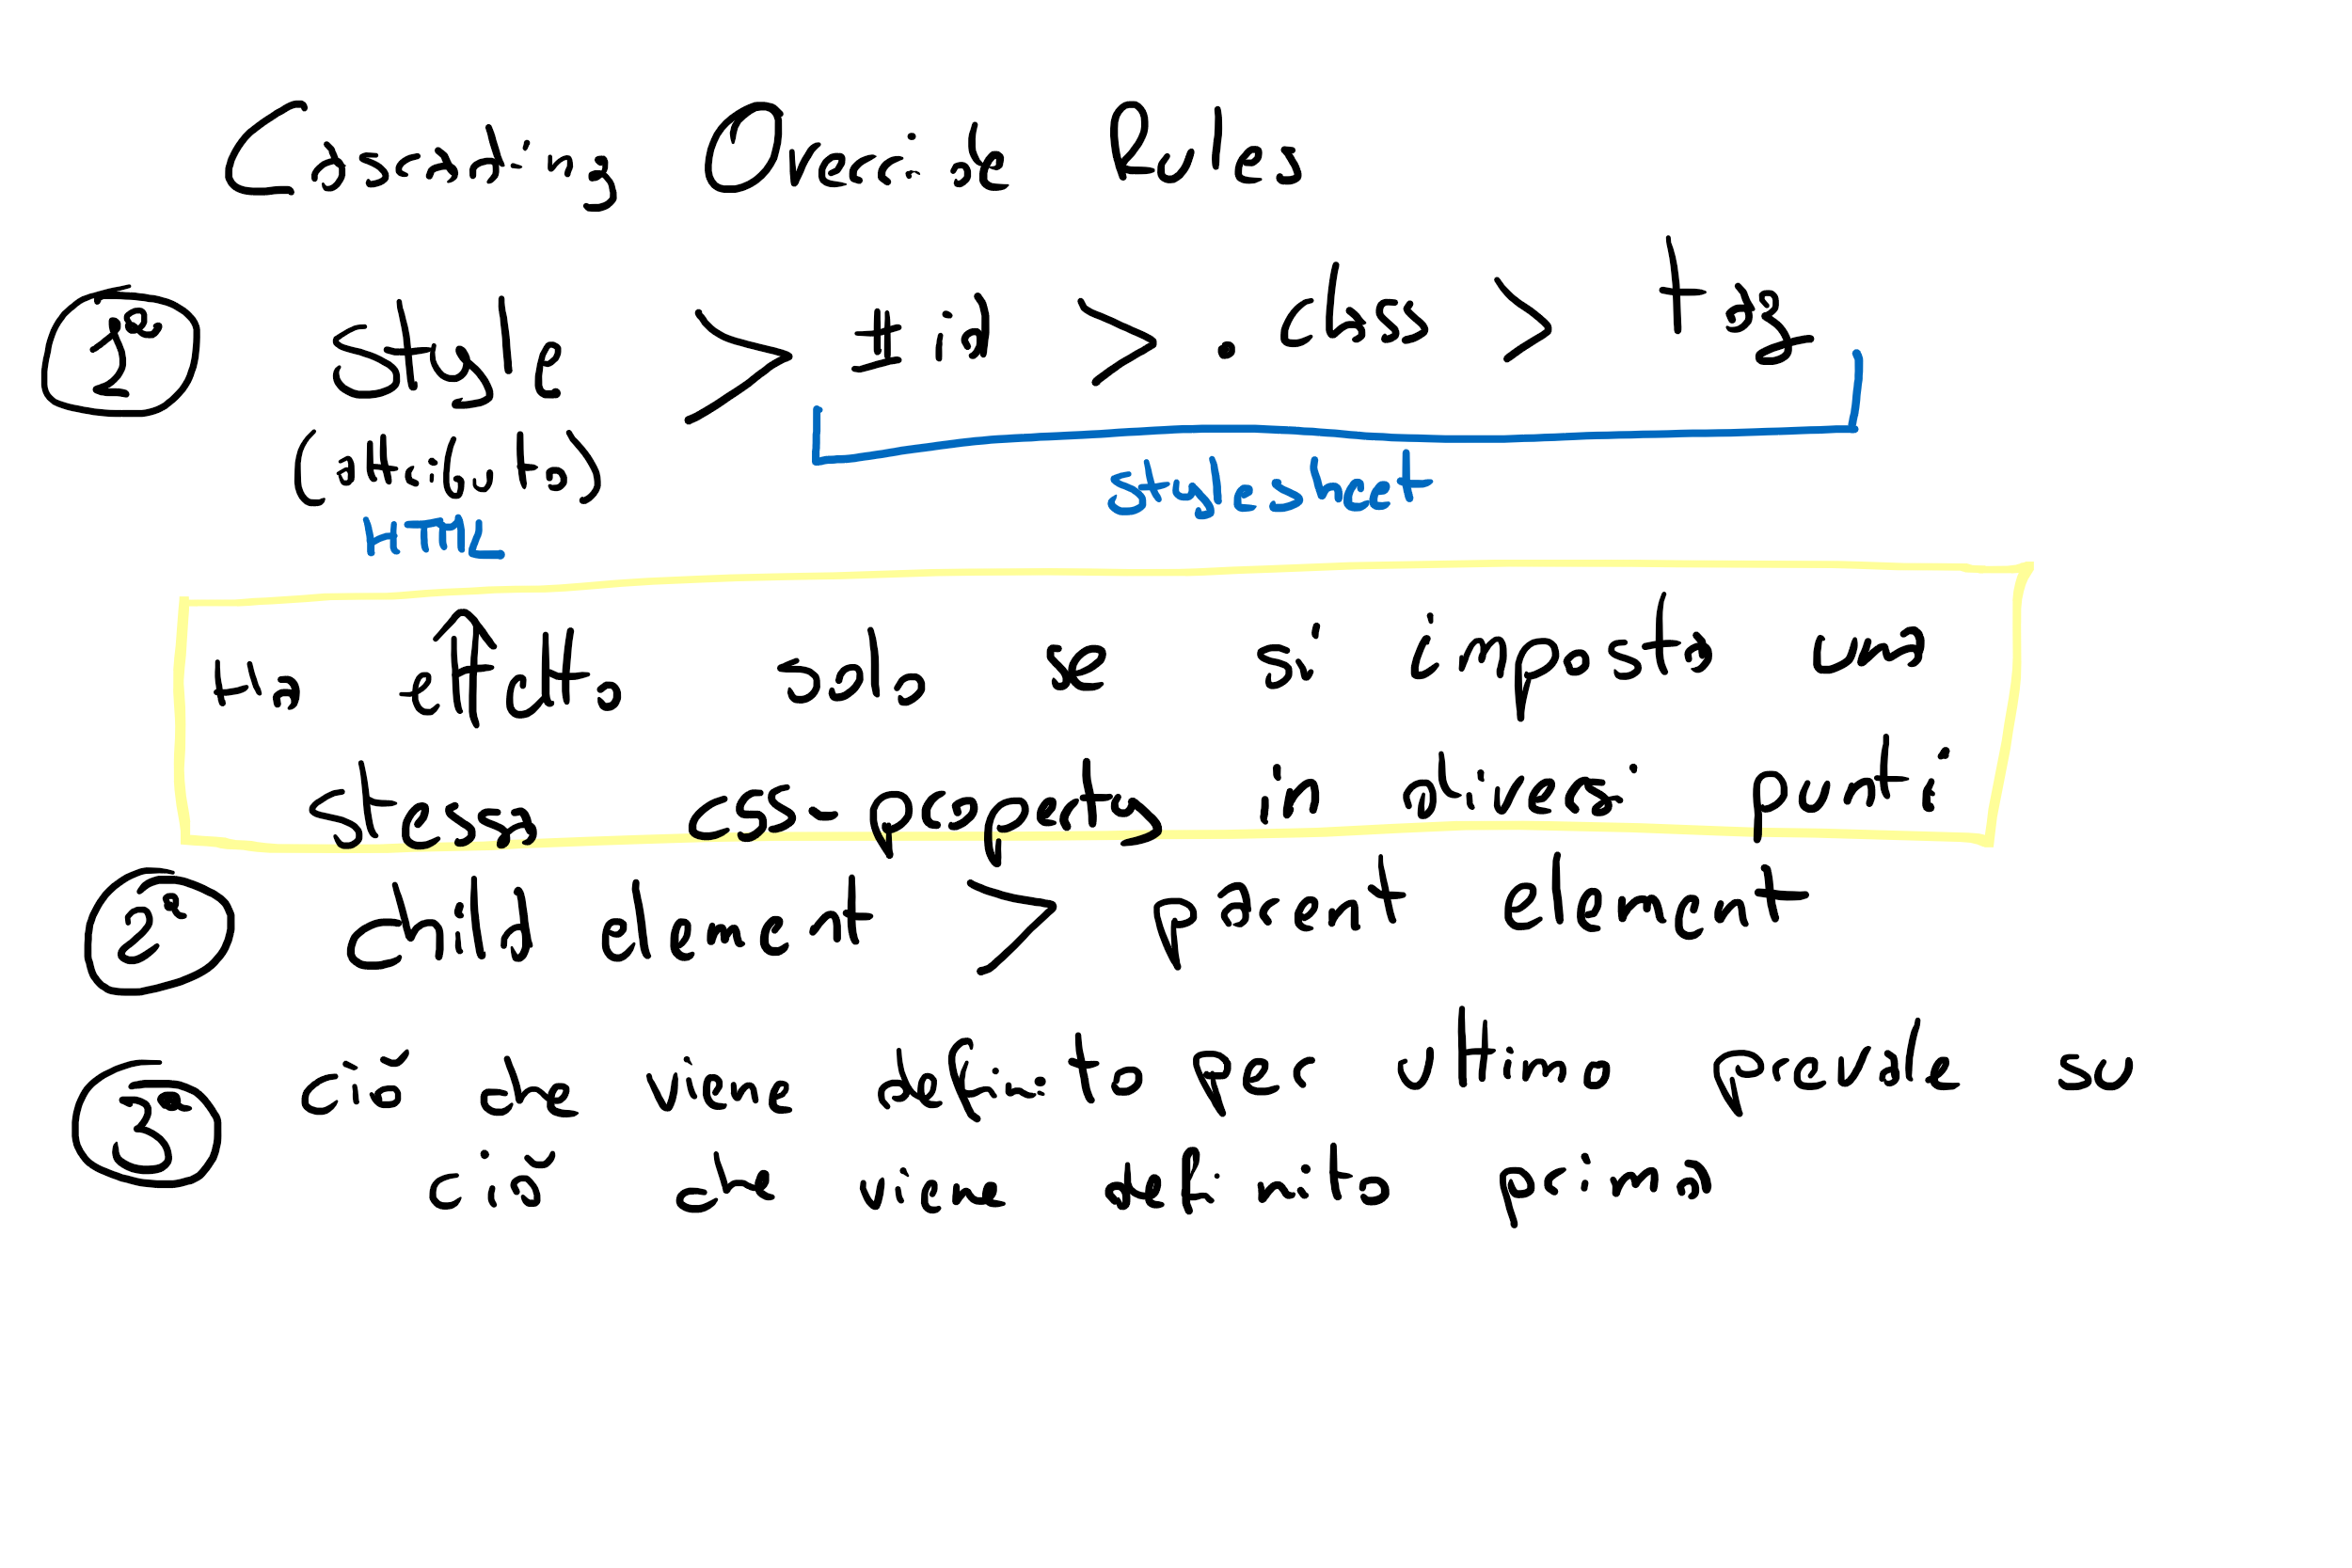 Cascading Override Rules
1° style > #id > .class > tag
(attributo)
stylesheet
HTML
Ha effetto solo se si imposta una
stessa css-property in diversi punti
2° child element > parent element
3° ciò che viene definito per ultimo prevale su
ciò che viene definito prima